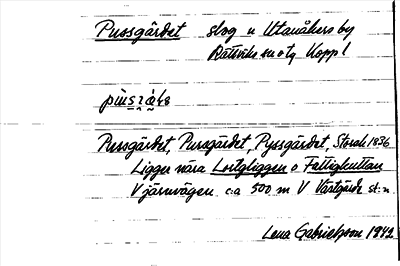 Pussgärdet slog u Utanåkers by
Rättviks sn o tg Kopp l
Pussgärdet, Pursgärdet, Pyssgärdet, Storsk 1836
Ligger nära Lortgliggen o Fattighuttan
V järnvägen c:a 500 m V Västgärde st:n
Lena Gabrielsson 1942